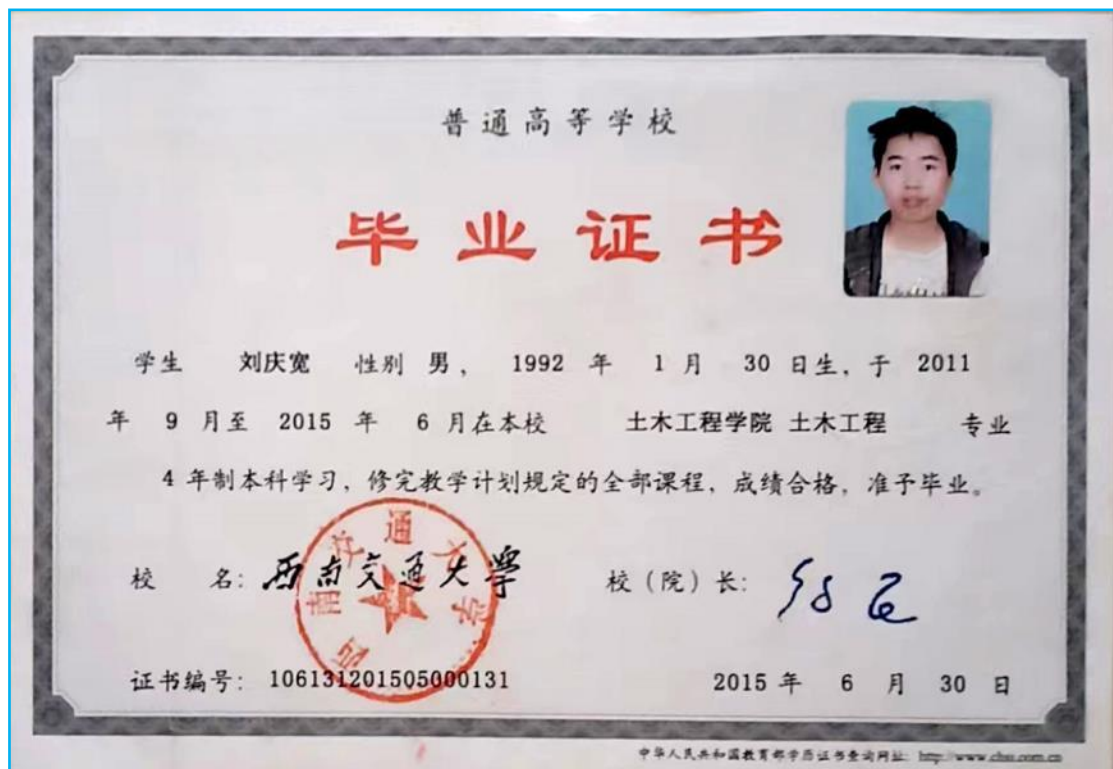 普通高等学校
毕业证书
学生 刘庆宽 性别 男， 1992 年 1 月 30 日生，于 2011
年 9 月至 2015 年 6 月在本校 土木工程学院 土木工程 专业
4 年制本科学习，修完教学计划规定的全部课程，成绩合格，准予毕业。
校 名：西南交通大学 校（院）长：
西南交通大学
证书编号： 106131201505000131 2015 年 6 月 30 日
中华人民共和国教育部学历证书查询网址： http://www.chsi.com.cn